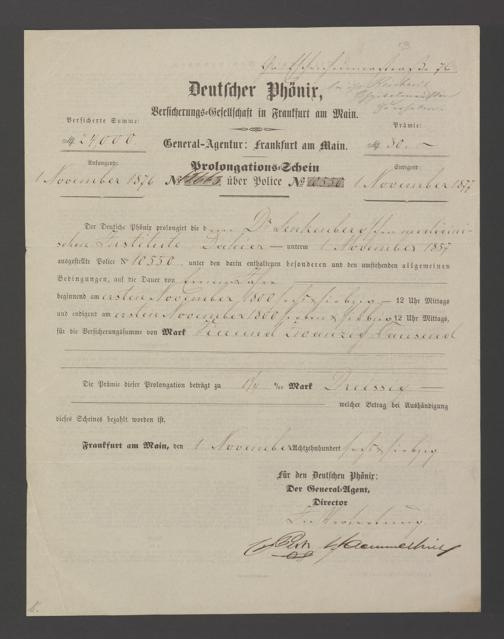 Deutscher Phönix,
Versicherungs-Gesellschaft in Frankfurt am Main.
Versicherte Summe: Prämie:
24,000 General-Agentur: Frankfurt am Main. 30.—
Anfangend: Prolongations-Schein Endigend:
1 November 1876 No über Police No 10550 1 November 1877
Der Deutsche Phönix prolongirt die dem Dr. Senkenbergischen medicini-
schen Institute Dahier — unterm 1 November 1857
ausgestellte Police No 10550 unter den darin enthaltenen besonderen und den umstehenden allgemeinen
Bedingungen, auf die Dauer von
beginnend am ersten November 1800 sechs & siebzig — 12 Uhr Mittags
und endigend am ersten November 1800 sieben & siebzig 12 Uhr Mittags,
für die Versicherungssumme von Mark Vier und Zwanzig Tausend
Die Prämie dieser Prolongation beträgt zu 1¼ ‰ Mark Dreissig —
welcher Betrag bei Aushändigung
dieses Scheines bezahlt worden ist.
Frankfurt am Main, den 1 November Achtzehnhundert sechs & siebzig
Für den Deutschen Phönix:
Der General-Agent,
Director